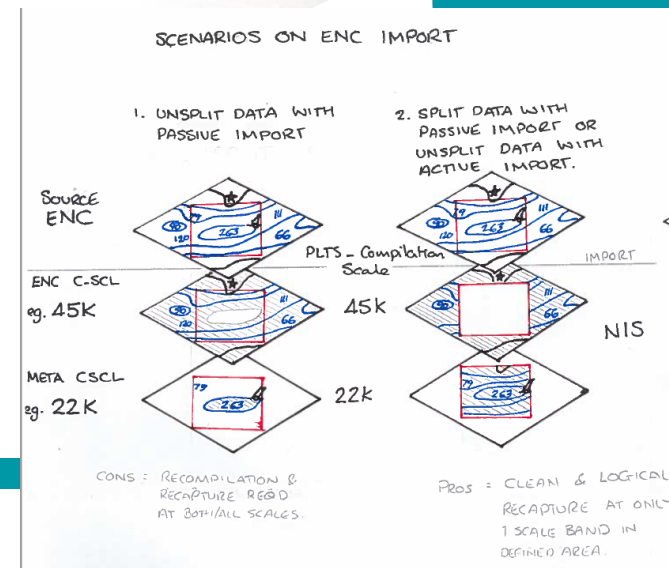 SCENARIOS ON ENC IMPORT
1. UNSPLIT DATA WITH
PASSIVE IMPORT
2. SPLIT DATA WITH
PASSIVE IMPORT OR
UNSPLIT DATA WITH
ACTIVE IMPORT.
SOURCE
ENC
79
263
111
66
90
120
79
263
111
66
90
120
PLTS - Compilation
Scale
IMPORT
ENC C-SCL
eg. 45K
90
120
111
66
45K
90
120
111
66
NIS
META CSCL
eg. 22K
79
263
22K
79
263
CONS = RECOMPILATION &
RECAPTURE REQD
AT BOTH/ALL SCALES.
PROS = CLEAN & LOGICAL
RECAPTURE AT ONLY
1 SCALE BAND IN
DEFINED AREA.